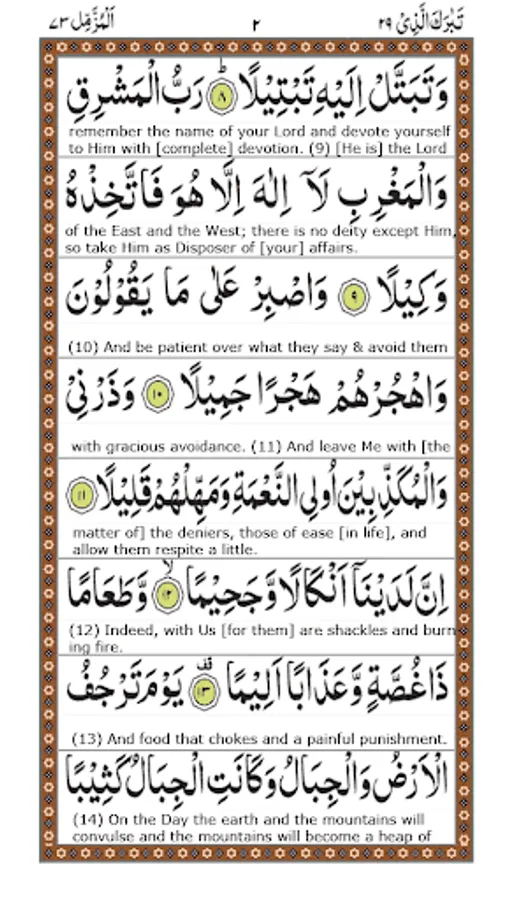 تَبٰرَكَ الَّذِيْ ٢٩ ٢ اَلْمُزَّمِّل ٧٣
وَتَبَتَّلْ اِلَيْهِ تَبْتِيْلًا ؕ ٨ رَبُّ الْمَشْرِقِ
remember the name of your Lord and devote yourself
to Him with [complete] devotion. (9) [He is] the Lord
وَالْمَغْرِبِ لَاۤ اِلٰهَ اِلَّا هُوَ فَاتَّخِذْهُ
of the East and the West; there is no deity except Him,
so take Him as Disposer of [your] affairs.
وَكِيْلًا ٩ وَاصْبِرْ عَلٰى مَا يَقُوْلُوْنَ
(10) And be patient over what they say & avoid them
وَاهْجُرْهُمْ هَجْرًا جَمِيْلًا ١٠ وَذَرْنِيْ
with gracious avoidance. (11) And leave Me with [the
وَالْمُكَذِّبِيْنَ اُولِى النَّعْمَةِ وَمَهِّلْهُمْ قَلِيْلًا ١١
matter of] the deniers, those of ease [in life], and
allow them respite a little.
اِنَّ لَدَيْنَاۤ اَنْكَالًا وَّجَحِيْمًا ۙ ١٢ وَّطَعَامًا
(12) Indeed, with Us [for them] are shackles and burn
ing fire.
ذَا غُصَّةٍ وَّعَذَابًا اَلِيْمًا ۗ ١٣ يَوْمَ تَرْجُفُ
(13) And food that chokes and a painful punishment.
الْاَرْضُ وَالْجِبَالُ وَكَانَتِ الْجِبَالُ كَثِيْبًا
(14) On the Day the earth and the mountains will
convulse and the mountains will become a heap of